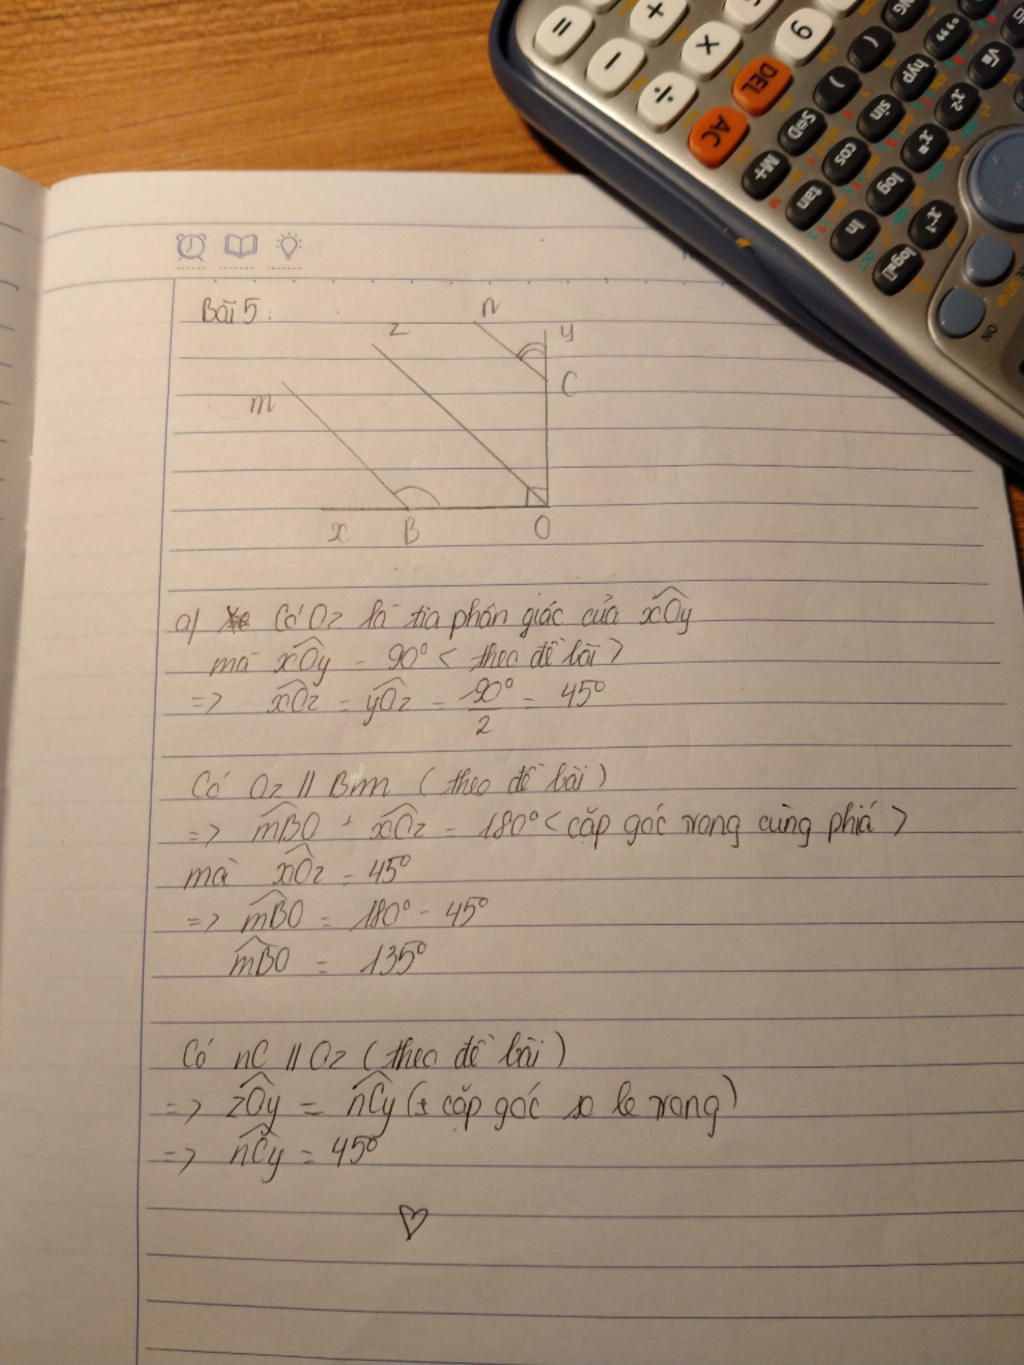 =
+
−
×
÷
9
DEL
AC
(
)
hyp
sin
S⇔D
cos
M+
tan
log
ln
x²
x⁻¹
ON
Bài 5:
n
z
y
m
C
x B O
a) Có Oz là tia phân giác của xOy
mà xOy = 90° < theo đề bài >
=> xOz = yOz = 90°/2 = 45°
Có Oz // Bm (theo đề bài)
=> mBO + xOz = 180° < cặp góc trong cùng phía >
mà xOz = 45°
=> mBO = 180° - 45°
mBO = 135°
Có nC // Oz (theo đề bài)
=> zOy = nCy (cặp góc so le trong)
=> nCy = 45°